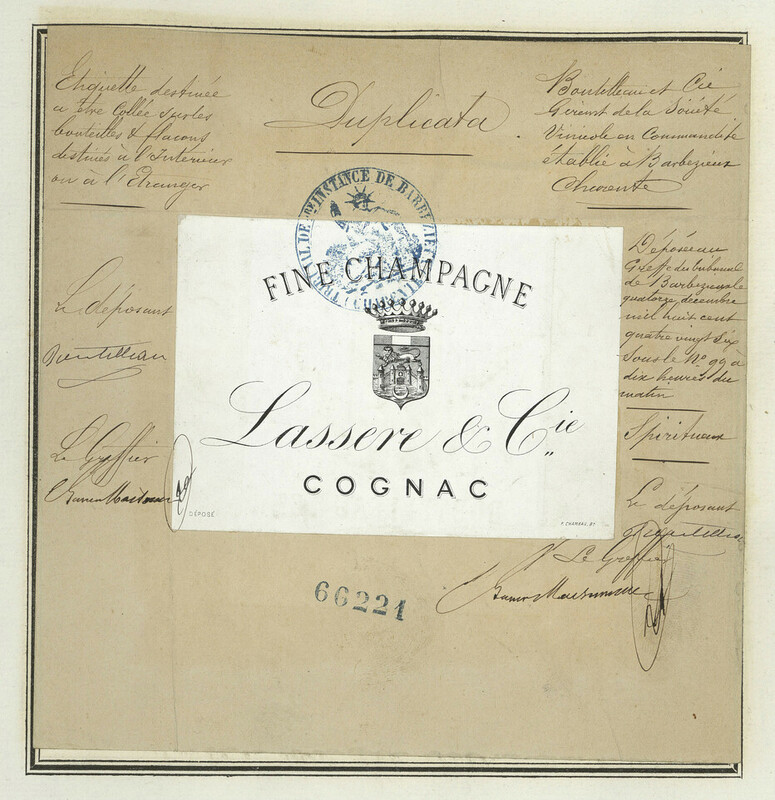 Duplicata
Etiquette destinée
a être Collée sur les
bouteilles & flacons
destinés à l'Interieur
ou à l'Etranger
Boutelleau et Cie
Gérent de la Société
Vinicole en Commandite
établie à Barbezieux
Charente
TRIBUNAL DE 1RE INSTANCE DE BARBEZIEUX
FINE CHAMPAGNE
Lassere & Cie
COGNAC
DÉPOSÉ
Le déposant
Le Greffier
Déposé au
Greffe du tribunal
de Barbezieux le
quatorze décembre
mil huit cent
quatre vingt six
sous le No 99 à
dix heures du
matin
Spiritueux
Le déposant
Le Greffier
66221